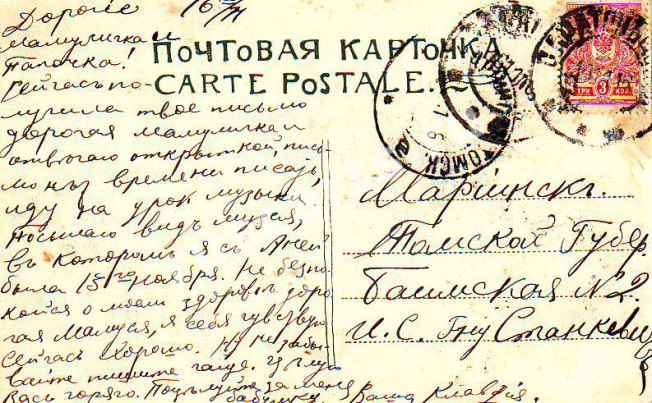 Дорогіе 16/XI
мамуличка и
папочка!
Сейчасъ по-
лучила твое письмо
дорогая мамуличка и
отвѣчаю открыткой, пись
мо нѣтъ времени писать,
иду на урок музыки.
Посылаю видъ музея,
въ которомъ я съ Аней
была 15го ноября. Не безпо
койся о моем здоровьѣ доро
гая Мамуся, я себя чувствую
сейчасъ хорошо. Не забы
вайте пишите чаще. Цѣлую
Васъ горячо. Поцѣлуйте за меня
бабушку. Ваша Клавдія.
ПОЧТОВАЯ КАРТОЧКА
CARTE POSTALE.
ТОМСК
ТРИ 3 КОП
Маріинскъ.
Томской Губер
Баимская №2.
И. С. Станкевич